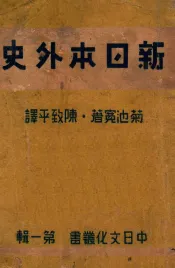 史外本日新
譯平致陳・著寬池菊
輯一第 書叢化文日中